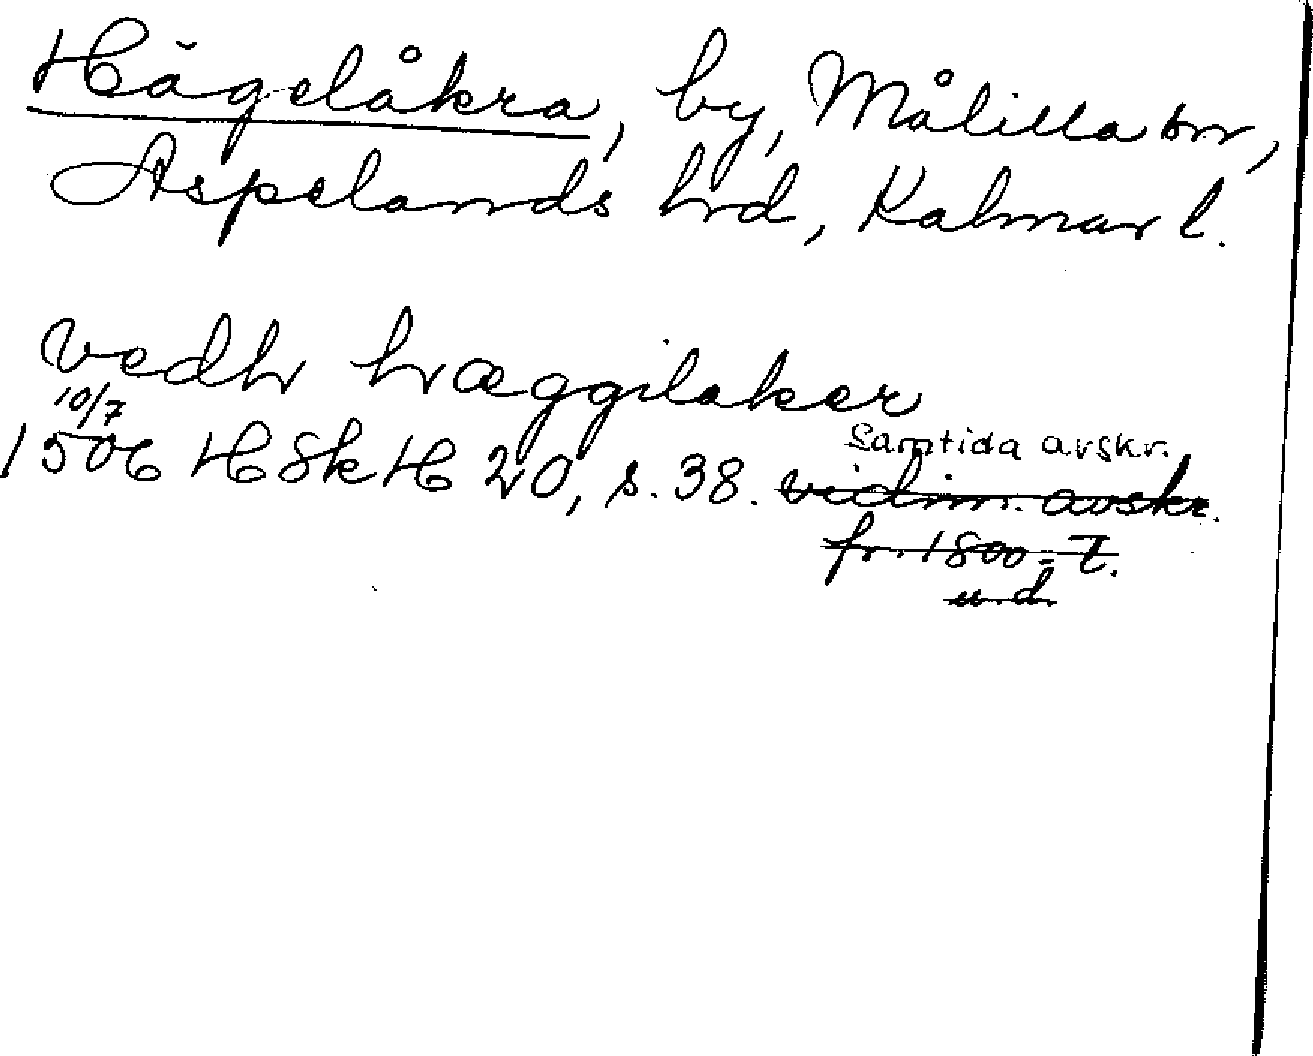 Hägelåkra, by, Målilla sn,
Aspelands hd, Kalmar l.
vedh hæggilaker
10/7
1506 HSkH 20, s. 38. samtida avskr.
vidim. avskr.
fr. 1800-t.
u.d.